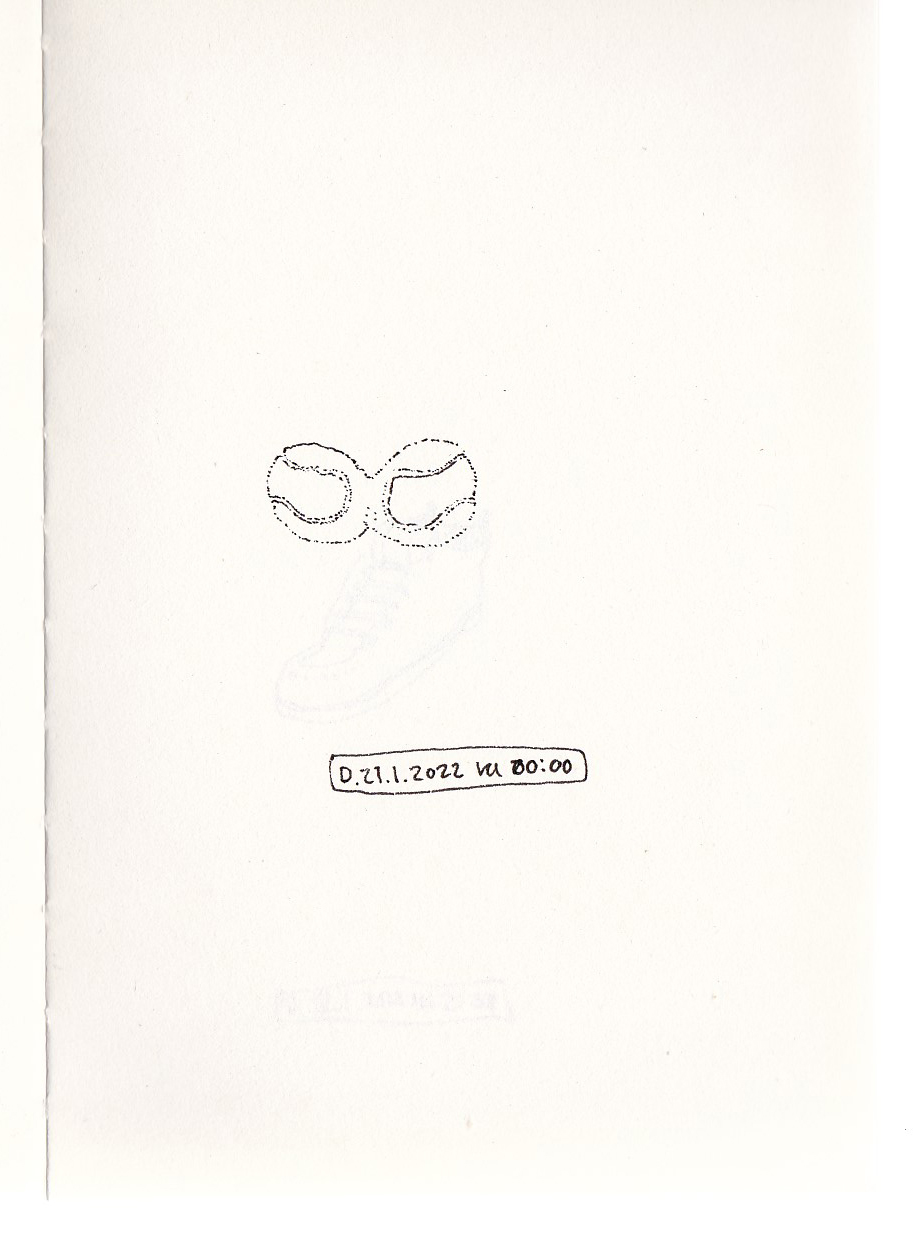 D.21.1.2022 kl 00:00